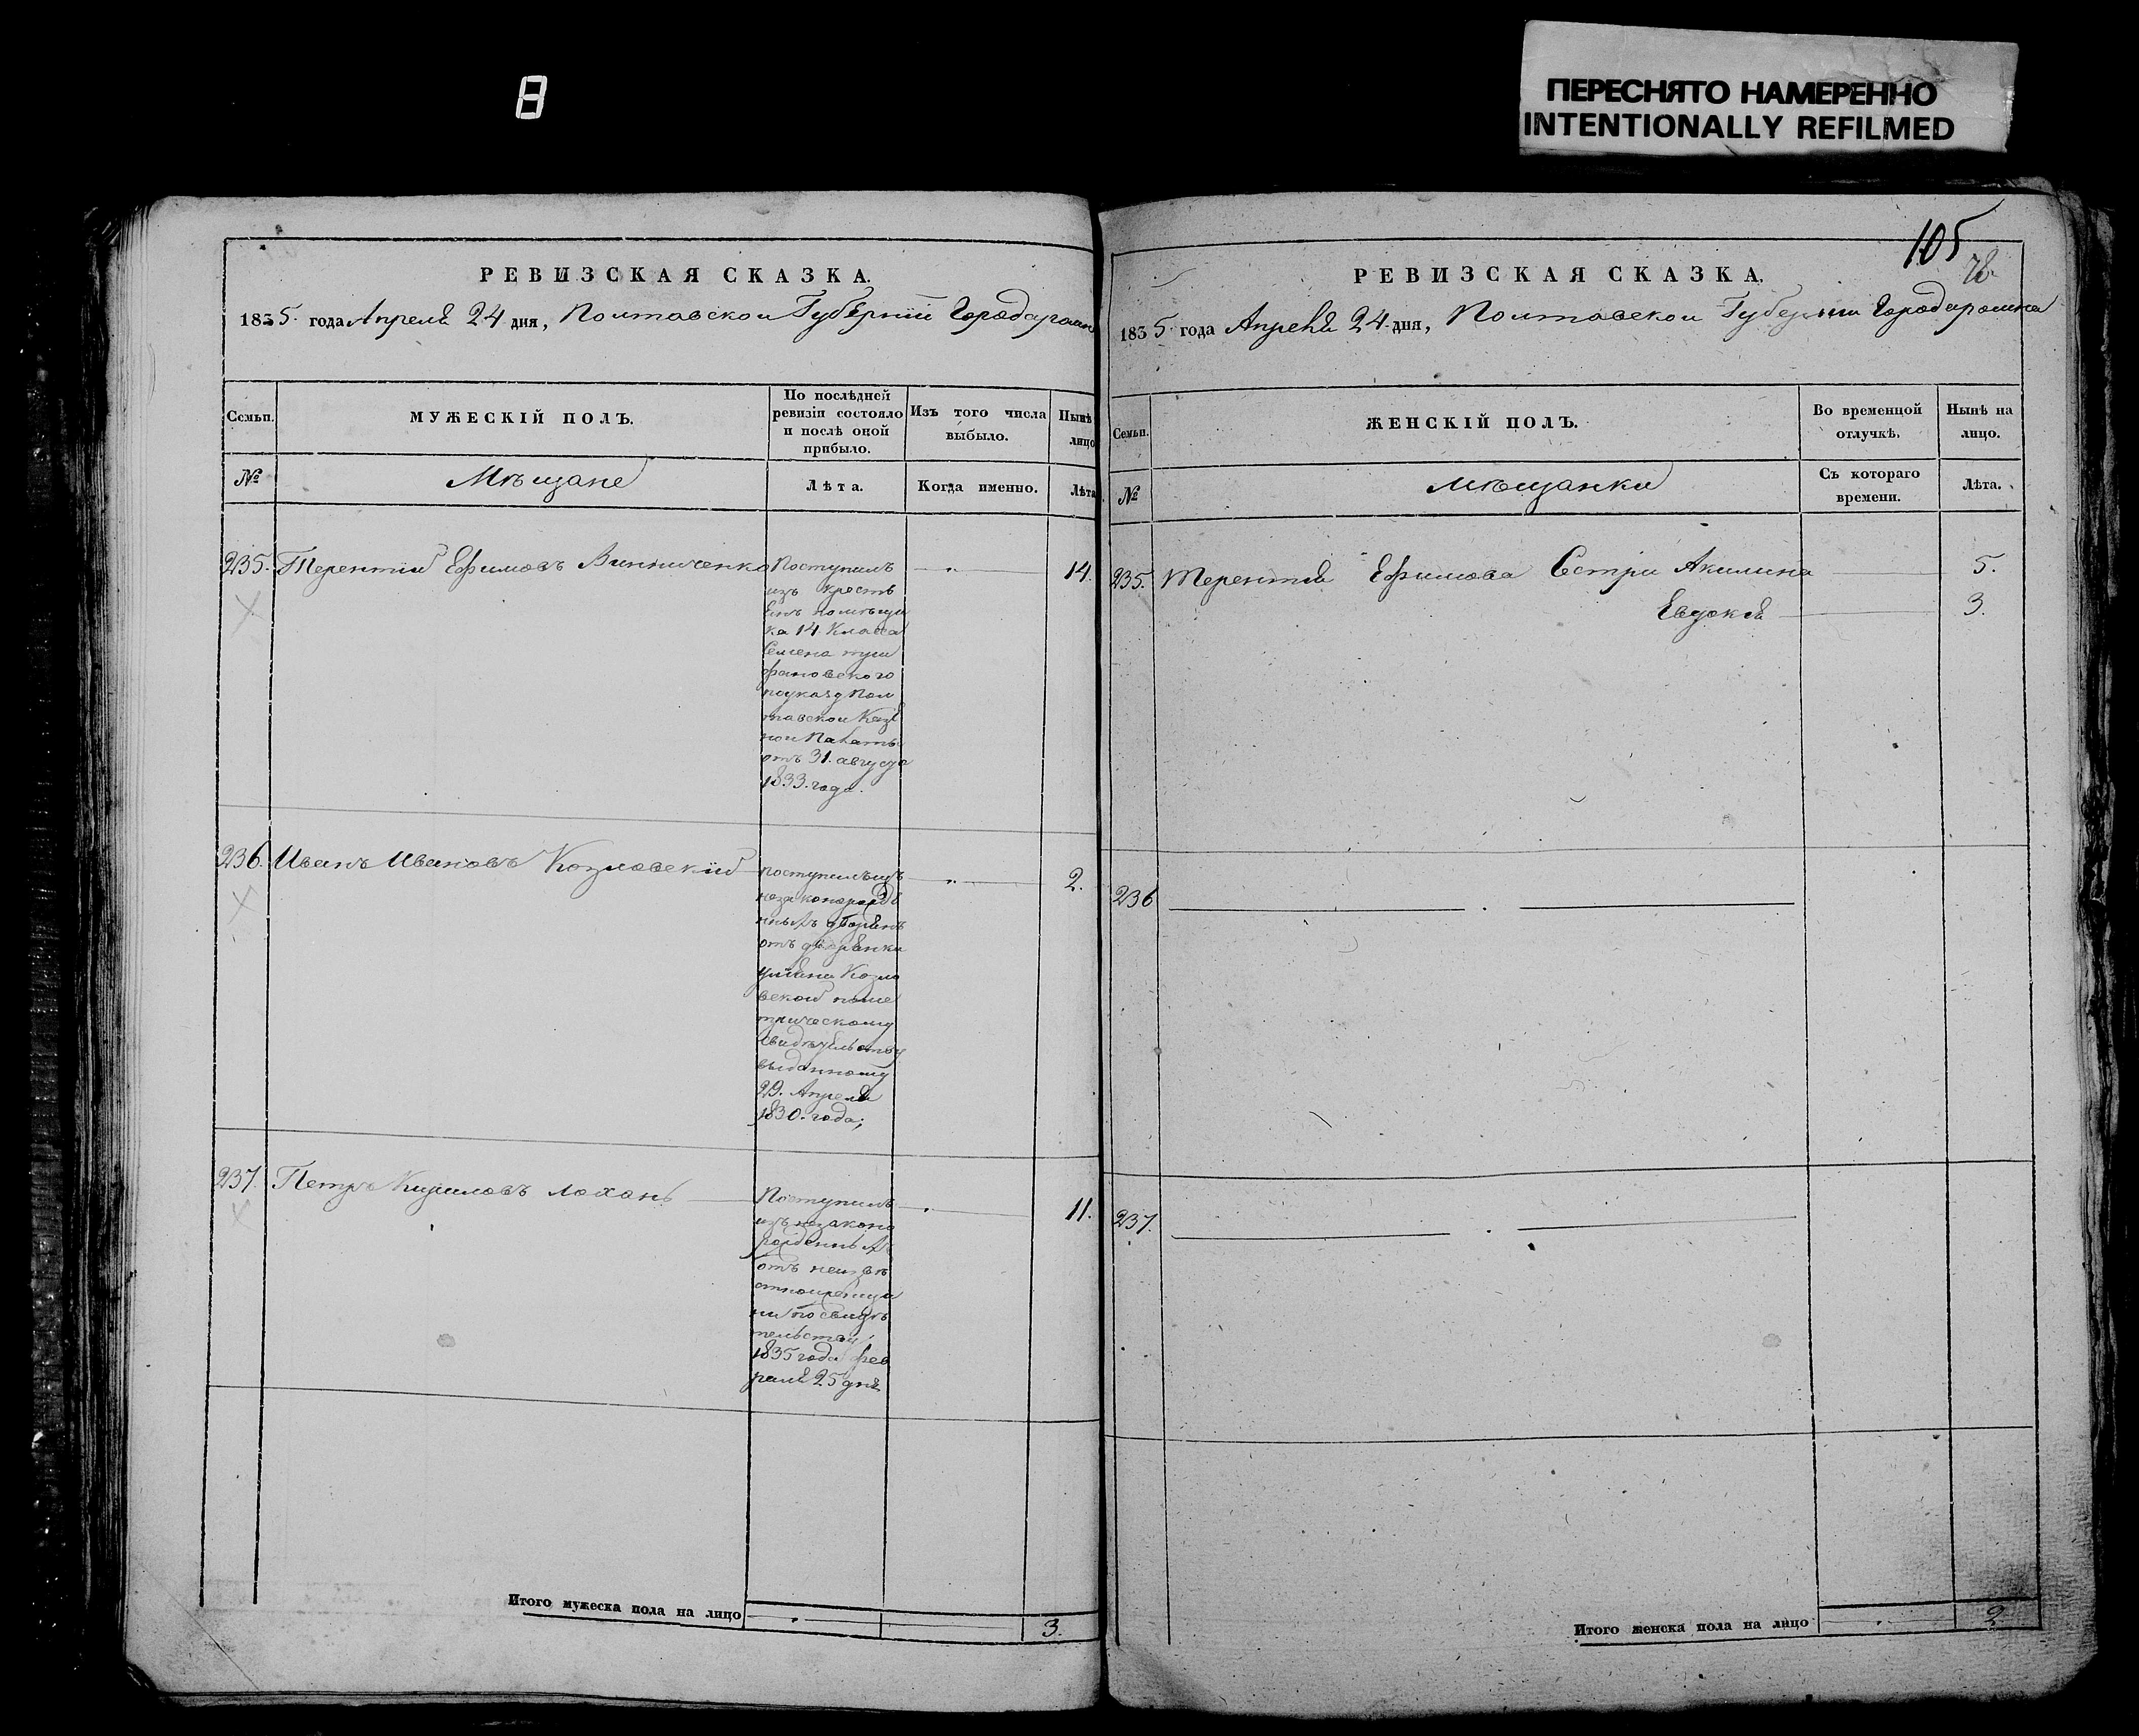 8
ПЕРЕСНЯТО НАМЕРЕННО
INTENTIONALLY REFILMED
РЕВИЗСКАЯ СКАЗКА.
1835. года Апреля 24 дня, Полтавской Губернии Города
Семьи.
МУЖЕСКІЙ ПОЛЪ.
По послѣдней
ревизіи состояло
и послѣ оной
прибыло.
Изъ того числа
выбыло.
Нынѣ
лицо
№
Мѣщане
Лѣта.
Когда именно.
Лѣта
235. Терентий Ефимовъ Винниченко
Поступилъ
изъ крестъ
янъ помѣщи
ка 14 Класса
Семена
фановского
поуказу Пол
тавской Казе
ной Палаты
отъ 31. августа
1833. года.
14.
236. Иванъ Ивановъ Козловский
поступилъ изъ
незаконорожде
нныхъ
отъ дворянки
Козло
вской
метрическому
свидѣтельству
выданному
29. Апреля
1830. года;
2.
237. Петръ Кириловъ Лохань
Поступилъ
изъ незакона
рожденныхъ
отъ неизвѣ
стного
свидѣ
тельству
1835 года фев
раля 25 дня
11.
Итого мужеска пола на лицо
3.
105
78.
РЕВИЗСКАЯ СКАЗКА.
1835 года Апреля 24 дня, Полтавской Губернии Города
Семьи.
ЖЕНСКІЙ ПОЛЪ.
Во временной
отлучкѣ.
Нынѣ на
лицо.
№
Мѣщанки
Съ котораго
времени.
Лѣта.
235. Терентия Ефимова Сестри Акилина 5.
Евдокия 3.
236
237.
Итого женска пола на лицо
2